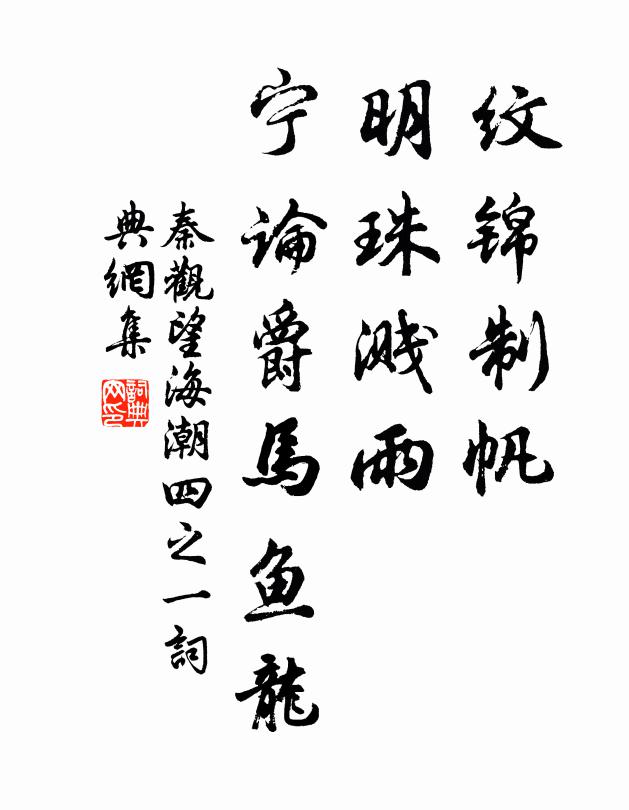 纹锦制帆
明珠溅雨
宁论爵馬鱼龍
秦觀望海潮四之一詞
典網集
詞典
网印